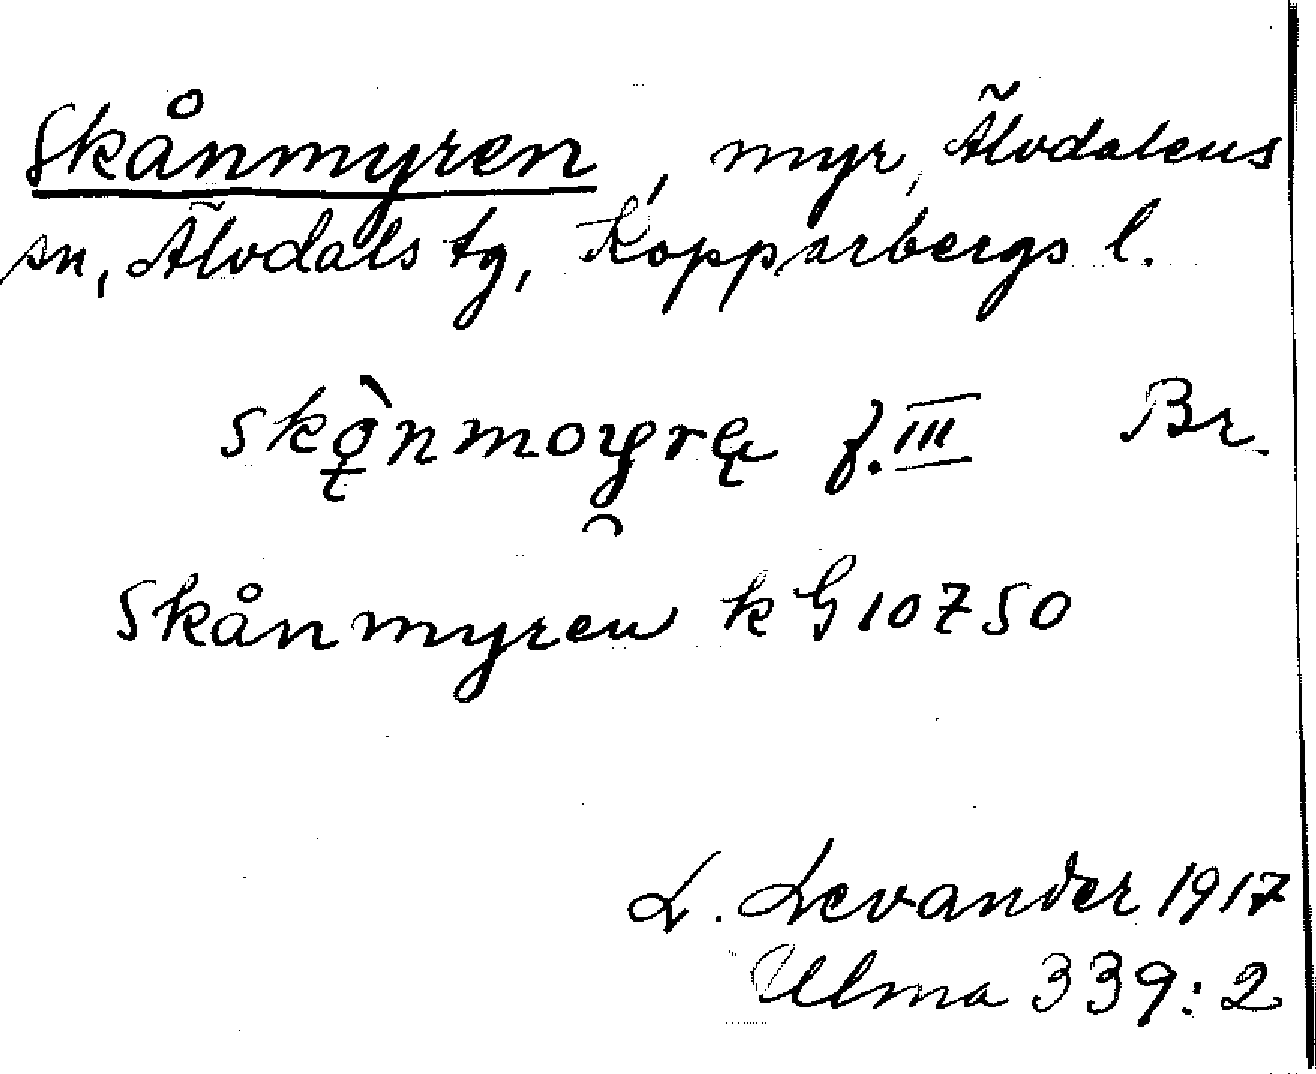 Skånmyren, myr, Älvdalens
sn, Älvdals tg, Kopparbergs l.
skǫ̀nmoyrę f. III Br.
Skånmyren k G 10750
L. Levander 1917
Ulma 339:2